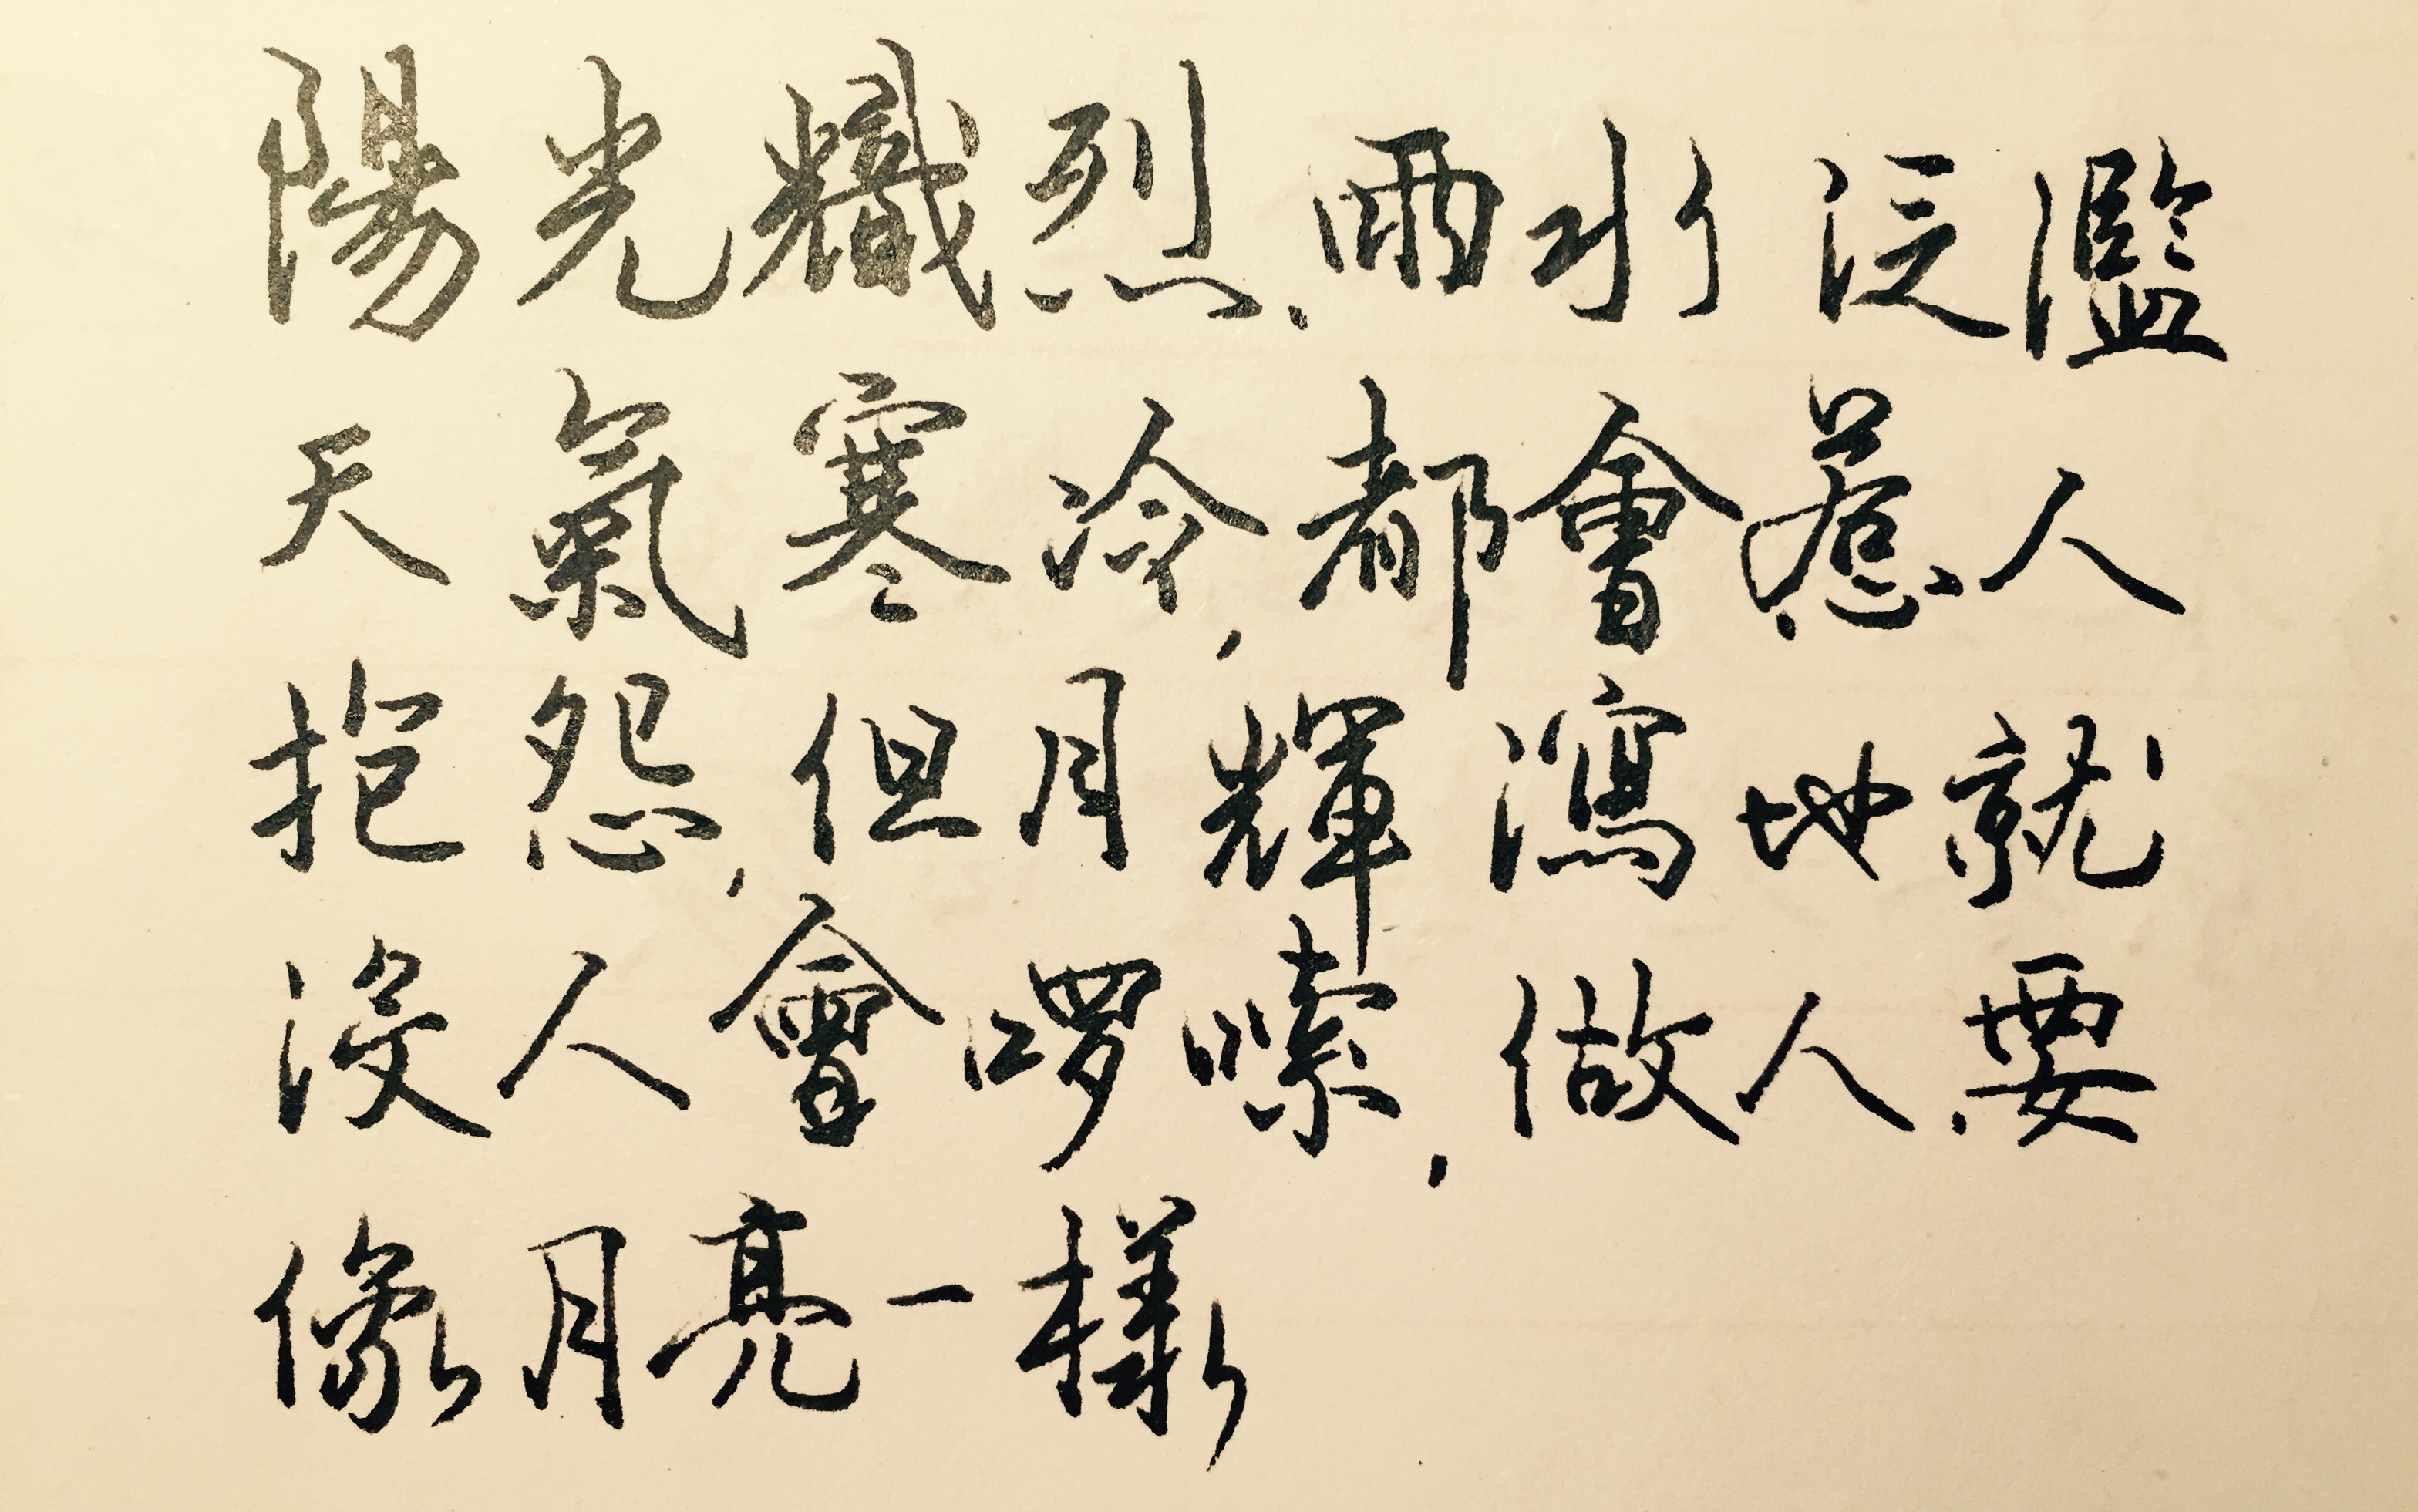 陽光熾烈.雨水泛濫
天氣寒冷,都會惹人
抱怨,但月輝瀉地就
沒人會啰嗦,做人要
像月亮一樣